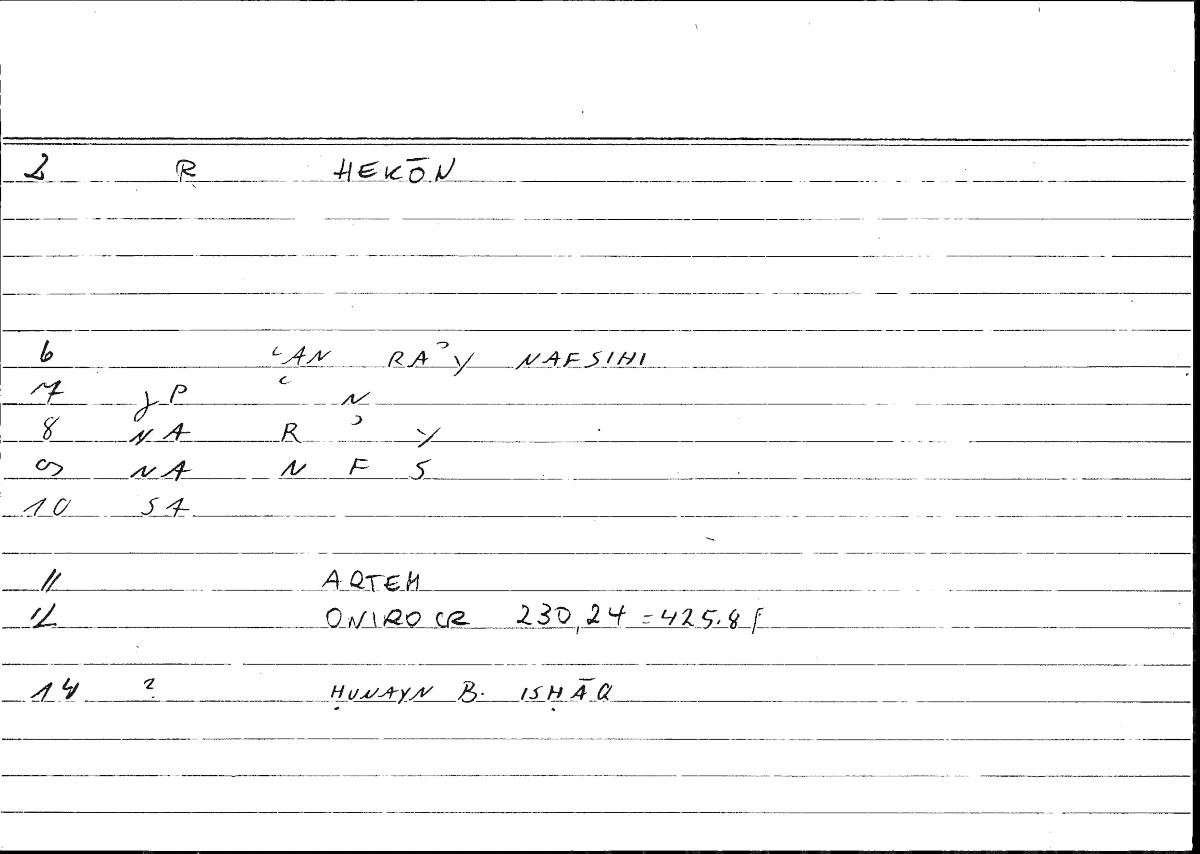 2 R HEKŌN
6 ʿAN RAʾY NAFSIHI
7 gP ʿ N
8 NA R ʾ Y
9 NA N F S
10 SA
11 ARTEM
12 ONIROCR 230,24 = 425.8 f
14 2 ḤUNAYN B. ISḤĀQ